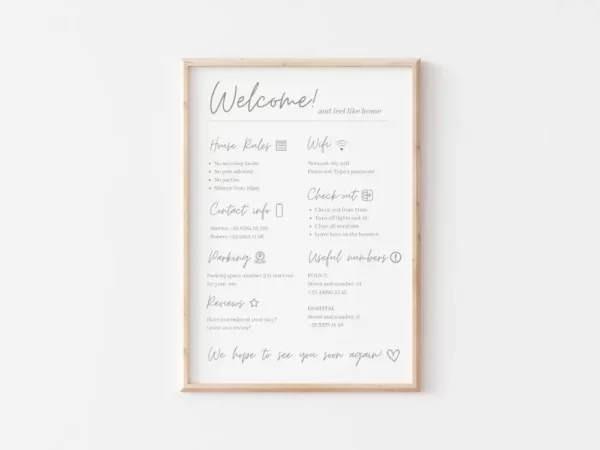 Welcome!
and feel like home
House Rules
No smoking inside
No pets allowed
No parties
Silence from 10pm
Contact info
Parking
Parking space number 2 is reserved
for your use
Reviews
Have you enjoyed your stay?
Leave us a review!
Wifi
Network: My wifi
Password: Type a password
Check out
Check out from 11am
Turn off lights and AC
Close all windows
Leave keys on the
Useful numbers
POLICE
Street and number,
HOSPITAL
Street and number,
We hope to see you soon again!